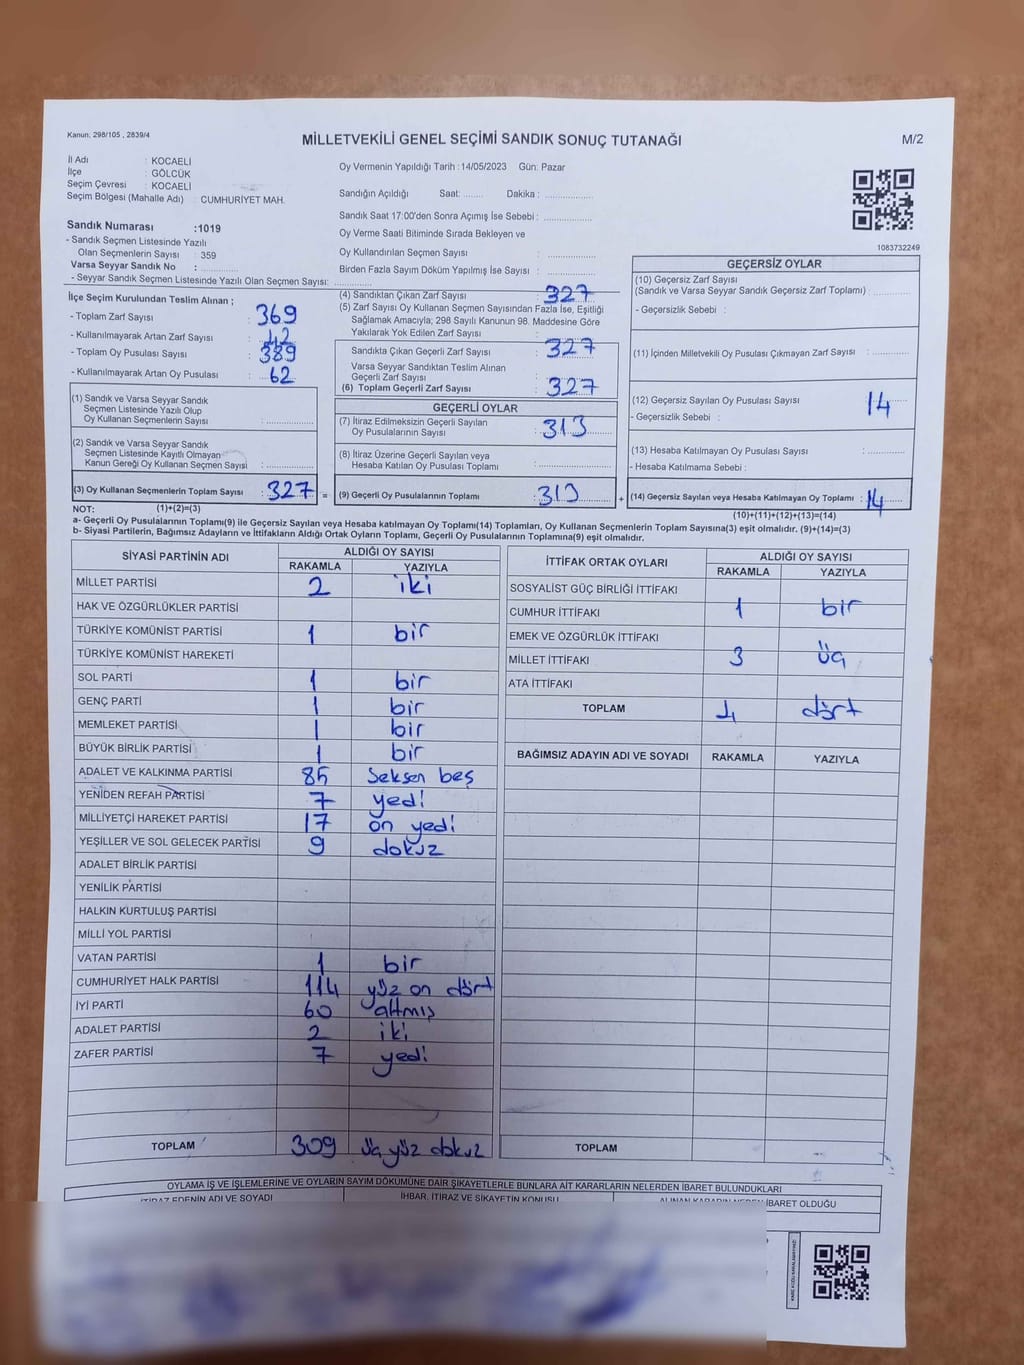 Kanun: 298/105 , 2839/4
MİLLETVEKİLİ GENEL SEÇİMİ SANDIK SONUÇ TUTANAĞI
M/2
İl Adı : KOCAELİ
İlçe : GÖLCÜK
Seçim Çevresi : KOCAELİ
Seçim Bölgesi (Mahalle Adı) CUMHURİYET MAH.
Oy Vermenin Yapıldığı Tarih : 14/05/2023 Gün: Pazar
Sandığın Açıldığı Saat: ........ Dakika : ..................
Sandık Saat 17:00'den Sonra Açımış İse Sebebi : ..................
Oy Verme Saati Bitiminde Sırada Bekleyen ve
Oy Kullandırılan Seçmen Sayısı : ..................
Birden Fazla Sayım Döküm Yapılmış İse Sayısı : ..................
1083732249
Sandık Numarası :1019
- Sandık Seçmen Listesinde Yazılı
Olan Seçmenlerin Sayısı : 359
Varsa Seyyar Sandık No : ..................
- Seyyar Sandık Seçmen Listesinde Yazılı Olan Seçmen Sayısı: ..................
İlçe Seçim Kurulundan Teslim Alınan ;
- Toplam Zarf Sayısı : 369
- Kullanılmayarak Artan Zarf Sayısı : 42
- Toplam Oy Pusulası Sayısı : 389
- Kullanılmayarak Artan Oy Pusulası : 62
(1) Sandık ve Varsa Seyyar Sandık
Seçmen Listesinde Yazılı Olup
Oy Kullanan Seçmenlerin Sayısı : ..................
(2) Sandık ve Varsa Seyyar Sandık
Seçmen Listesinde Kayıtlı Olmayan
Kanun Gereği Oy Kullanan Seçmen Sayısı : ..................
(3) Oy Kullanan Seçmenlerin Toplam Sayısı : 327 =
(4) Sandıktan Çıkan Zarf Sayısı : 327
(5) Zarf Sayısı Oy Kullanan Seçmen Sayısından Fazla İse, Eşitliği
Sağlamak Amacıyla; 298 Sayılı Kanunun 98. Maddesine Göre
Yakılarak Yok Edilen Zarf Sayısı : ..................
Sandıkta Çıkan Geçerli Zarf Sayısı : 327
Varsa Seyyar Sandıktan Teslim Alınan
Geçerli Zarf Sayısı : ..................
(6) Toplam Geçerli Zarf Sayısı : 327
GEÇERLİ OYLAR
(7) İtiraz Edilmeksizin Geçerli Sayılan
Oy Pusulalarının Sayısı : 313
(8) İtiraz Üzerine Geçerli Sayılan veya
Hesaba Katılan Oy Pusulası Toplamı : ..................
(9) Geçerli Oy Pusulalarının Toplamı : 313 +
GEÇERSİZ OYLAR
(10) Geçersiz Zarf Sayısı
(Sandık ve Varsa Seyyar Sandık Geçersiz Zarf Toplamı) : ..................
- Geçersizlik Sebebi :
(11) İçinden Milletvekili Oy Pusulası Çıkmayan Zarf Sayısı : ..................
(12) Geçersiz Sayılan Oy Pusulası Sayısı : 14
- Geçersizlik Sebebi :
(13) Hesaba Katılmayan Oy Pusulası Sayısı : ..................
- Hesaba Katılmama Sebebi :
(14) Geçersiz Sayılan veya Hesaba Katılmayan Oy Toplamı : 14
NOT: (1)+(2)=(3)
(10)+(11)+(12)+(13)=(14)
a- Geçerli Oy Pusulalarının Toplamı(9) ile Geçersiz Sayılan veya Hesaba katılmayan Oy Toplamı(14) Toplamları, Oy Kullanan Seçmenlerin Toplam Sayısına(3) eşit olmalıdır. (9)+(14)=(3)
b- Siyasi Partilerin, Bağımsız Adayların ve İttifakların Aldığı Ortak Oyların Toplamı, Geçerli Oy Pusulalarının Toplamına(9) eşit olmalıdır.
SİYASİ PARTİNİN ADI ALDIĞI OY SAYISI
RAKAMLA YAZIYLA
MİLLET PARTİSİ 2 iki
HAK VE ÖZGÜRLÜKLER PARTİSİ
TÜRKİYE KOMÜNİST PARTİSİ 1 bir
TÜRKİYE KOMÜNİST HAREKETİ
SOL PARTİ 1 bir
GENÇ PARTİ 1 bir
MEMLEKET PARTİSİ 1 bir
BÜYÜK BİRLİK PARTİSİ 1 bir
ADALET VE KALKINMA PARTİSİ 85 Seksen beş
YENİDEN REFAH PARTİSİ 7 yedi
MİLLİYETÇİ HAREKET PARTİSİ 17 on yedi
YEŞİLLER VE SOL GELECEK PARTİSİ 9 dokuz
ADALET BİRLİK PARTİSİ
YENİLİK PARTİSİ
HALKIN KURTULUŞ PARTİSİ
MİLLİ YOL PARTİSİ
VATAN PARTİSİ 1 bir
CUMHURİYET HALK PARTİSİ 114 yüz on dört
İYİ PARTİ 60 altmış
ADALET PARTİSİ 2 iki
ZAFER PARTİSİ 7 yedi
TOPLAM 309 üç yüz dokuz
İTTİFAK ORTAK OYLARI ALDIĞI OY SAYISI
RAKAMLA YAZIYLA
SOSYALİST GÜÇ BİRLİĞİ İTTİFAKI
CUMHUR İTTİFAKI 1 bir
EMEK VE ÖZGÜRLÜK İTTİFAKI
MİLLET İTTİFAKI 3 üç
ATA İTTİFAKI
TOPLAM 4 dört
BAĞIMSIZ ADAYIN ADI VE SOYADI RAKAMLA YAZIYLA
TOPLAM
OYLAMA İŞ VE İŞLEMLERİNE VE OYLARIN SAYIM DÖKÜMÜNE DAİR ŞİKAYETLERLE BUNLARA AİT KARARLARIN NELERDEN İBARET BULUNDUKLARI
İTİRAZ EDENİN ADI VE SOYADI
İHBAR, İTİRAZ VE ŞİKAYETİN KONUSU
ALINAN KARARIN NEDEN İBARET OLDUĞU